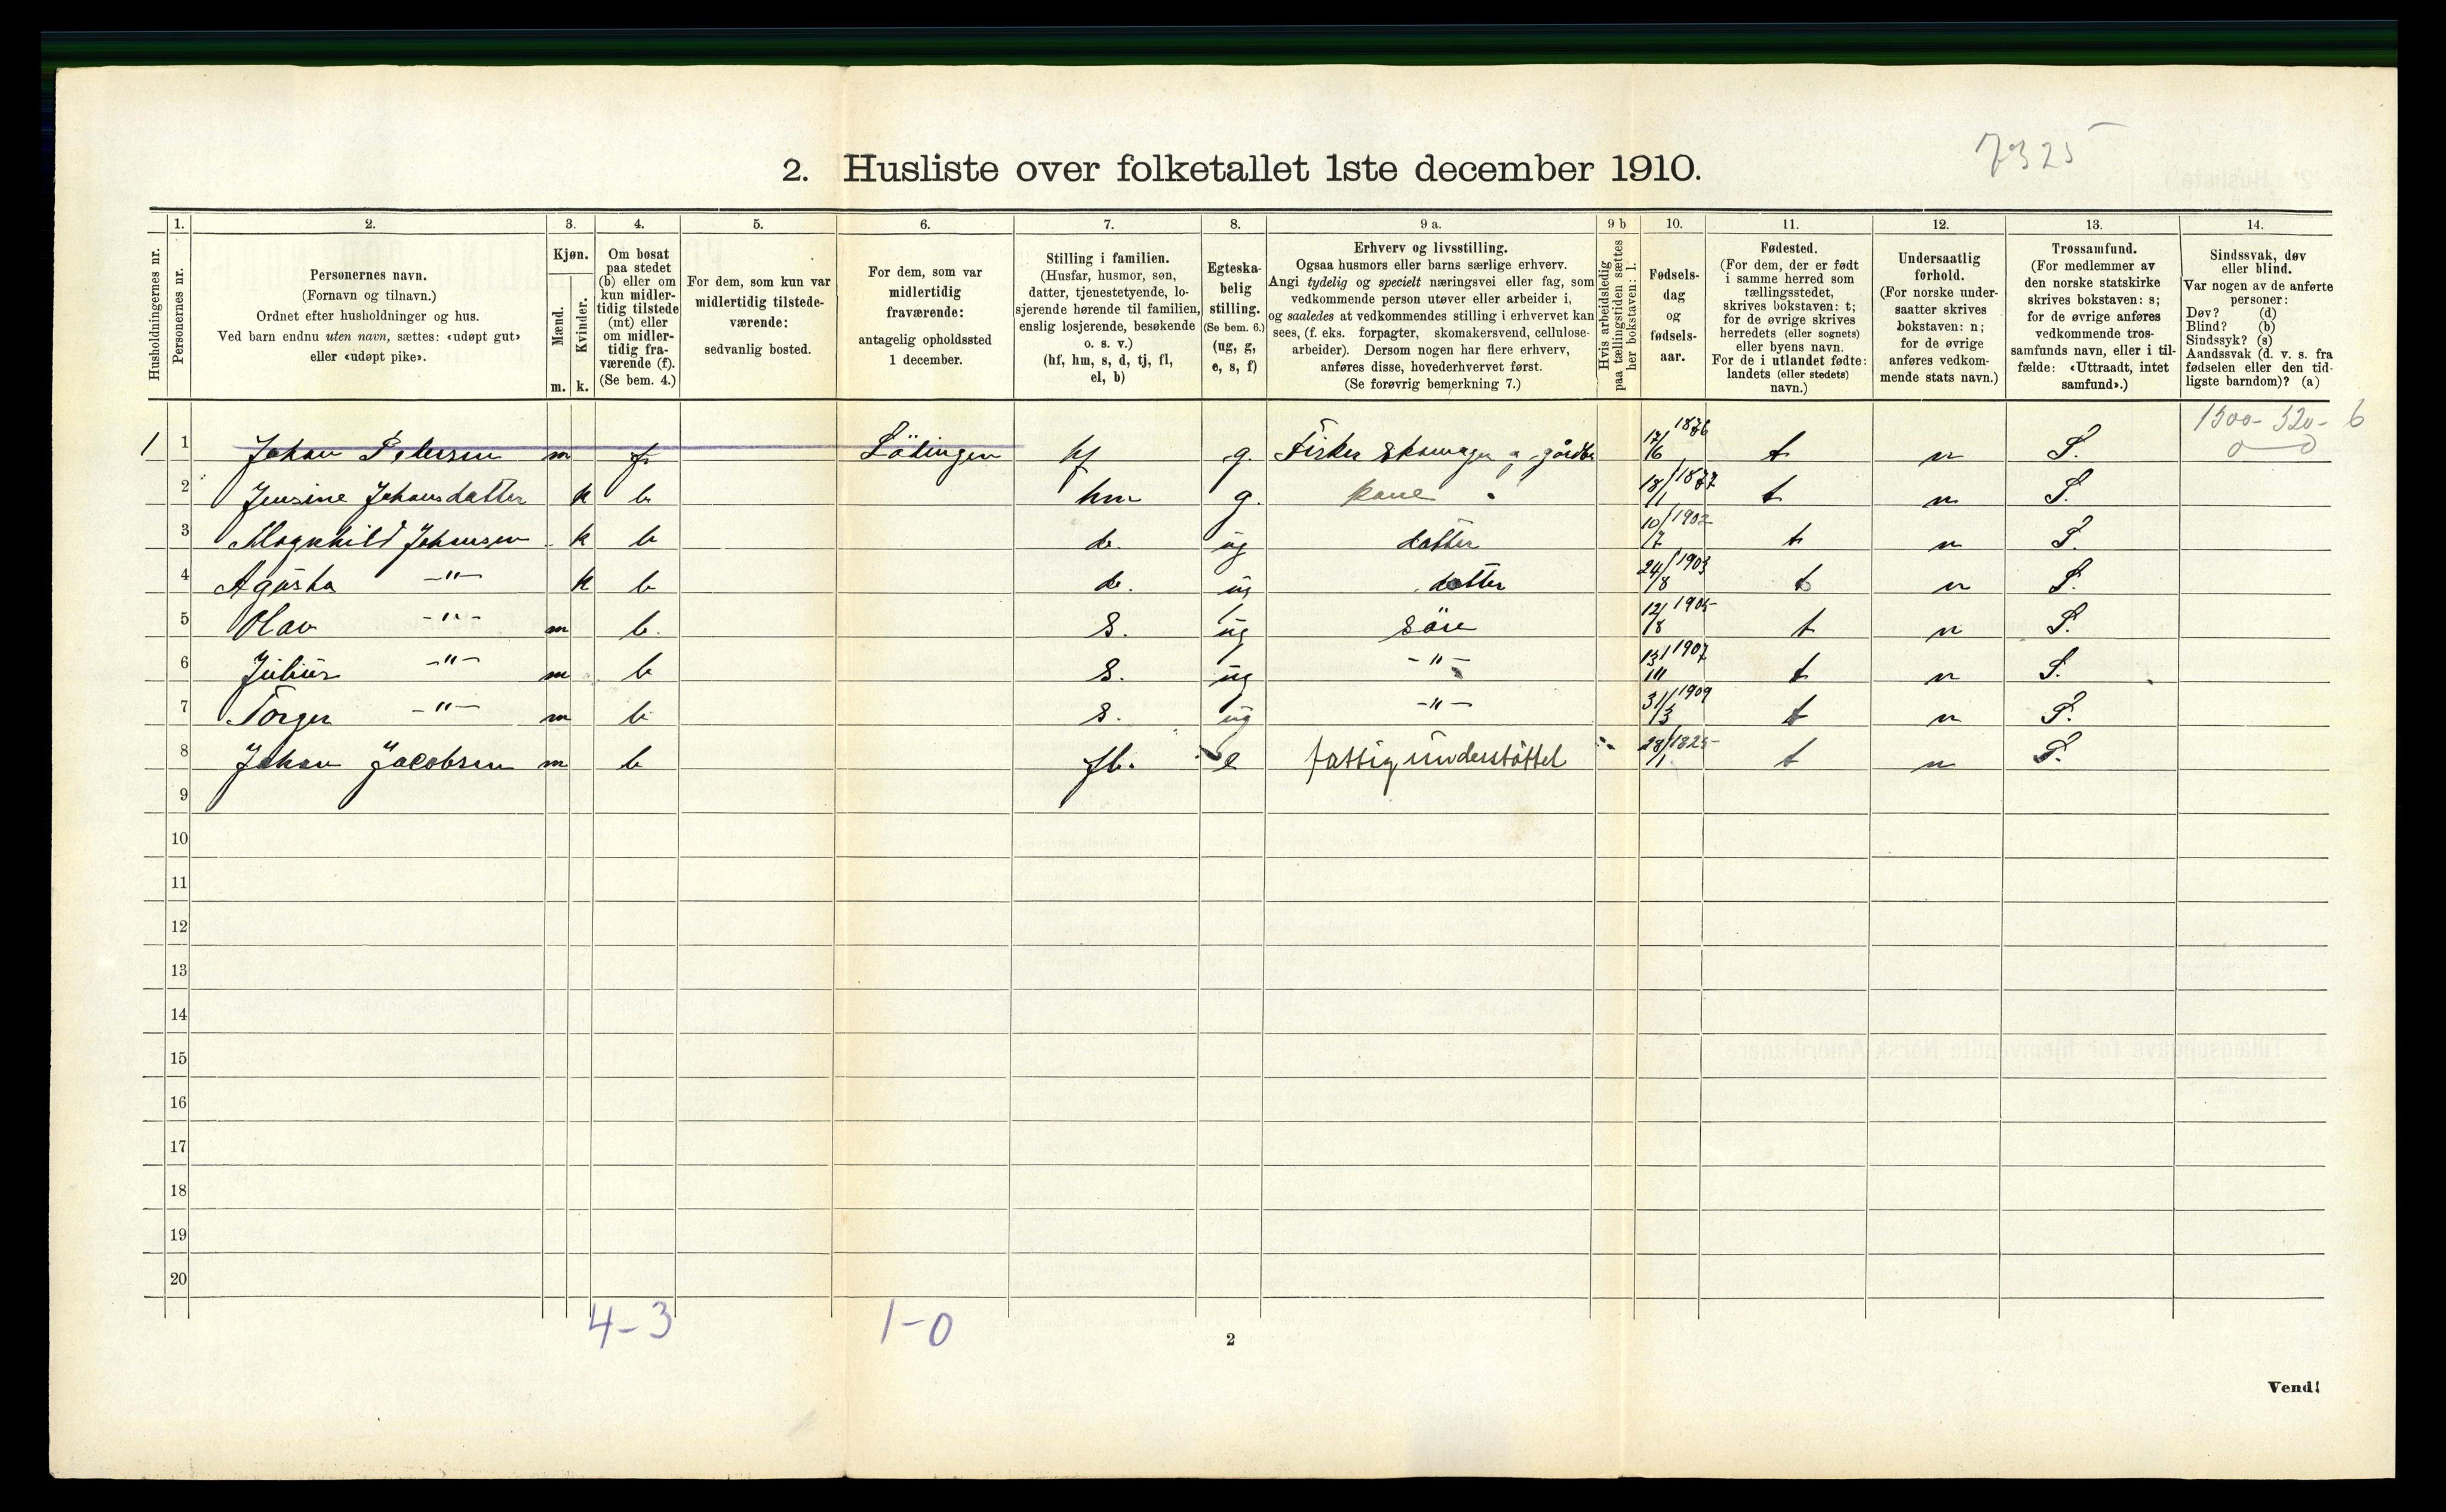 7325
2. Husliste over folketallet 1ste december 1910.
Husholdningernes nr.
1.
Personernes nr.
2.
Personernes navn.
(Fornavn og tilnavn.)
Ordnet efter husholdninger og hus.
Ved barn endnu uten navn, sættes: «udøpt gut»
eller «udøpt pike».
3.
Kjøn.
Mænd.
Kvinder.
m. k.
4.
Om bosat
paa stedet
(b) eller om
kun midler-
tidig tilstede
(mt) eller
om midler-
tidig fra-
værende (f).
(Se bem. 4.)
5.
For dem, som kun var
midlertidig tilstede-
værende:
sedvanlig bosted.
6.
For dem, som var
midlertidig
fraværende:
antagelig opholdssted
1 december.
7.
Stilling i familien.
(Husfar, husmor, søn,
datter, tjenestetyende, lo-
sjerende hørende til familien,
enslig losjerende, besøkende
o. s. v.)
(hf, hm, s, d, tj, fl,
el, b)
8.
Egteska-
belig
stilling.
(Se bem. 6.)
(ug, g,
e, s, f)
9 a.
Erhverv og livsstilling.
Ogsaa husmors eller barns særlige erhverv.
Angi tydelig og specielt næringsvei eller fag, som
vedkommende person utøver eller arbeider i,
og saaledes at vedkommendes stilling i erhvervet kan
sees, (f. eks. forpagter, skomakersvend, cellulose-
arbeider). Dersom nogen har flere erhverv,
anføres disse, hovederhvervet først.
(Se forøvrig bemerkning 7.)
9 b
Hvis arbeidsledig
paa tællingstiden sættes
her bokstaven: l.
10.
Fødsels-
dag
og
fødsels-
aar.
11.
Fødested.
(For dem, der er født
i samme herred som
tællingsstedet,
skrives bokstaven: t;
for de øvrige skrives
herredets (eller sognets)
eller byens navn.
For de i utlandet fødte:
landets (eller stedets)
navn.)
12.
Undersaatlig
forhold.
(For norske under-
saatter skrives
bokstaven: n;
for de øvrige
anføres vedkom-
mende stats navn.)
13.
Trossamfund.
(For medlemmer av
den norske statskirke
skrives bokstaven: s;
for de øvrige anføres
vedkommende tros-
samfunds navn, eller i til-
fælde: «Uttraadt, intet
samfund».)
14.
Sindssvak, døv
eller blind.
Var nogen av de anførte
personer:
Døv? (d)
Blind? (b)
Sindssyk? (s)
Aandssvak (d. v. s. fra
fødselen eller den tid-
ligste barndom)? (a)
1500-520-6
0-0
1 1 Johan Petersen m f Lödingen hf g. Fisker Skomager 17/6 1876 t n S.
2 Jensine Johansdatter k b hm g. kone 18/1 1877 t n S.
3 Magnhild Johansen k b d. ug datter 10/7 1902 t n S.
4 Agusta -"- k b d. ug datter 24/8 1903 t n S.
5 Olav -"- m b. S. ug Söne 12/8 1905 t n S.
6 Julius -"- m b S. ug -"- 13/11 1907 t n S.
7 Torger -"- m b S. ug -"- 31/3 1909 t n S.
8 Johan Jacobsen m b fl. e fattig understöttet 28/1 1825 t n S.
9
10
11
12
13
14
15
16
17
18
19
20
4-3 1-0
2
Vend!